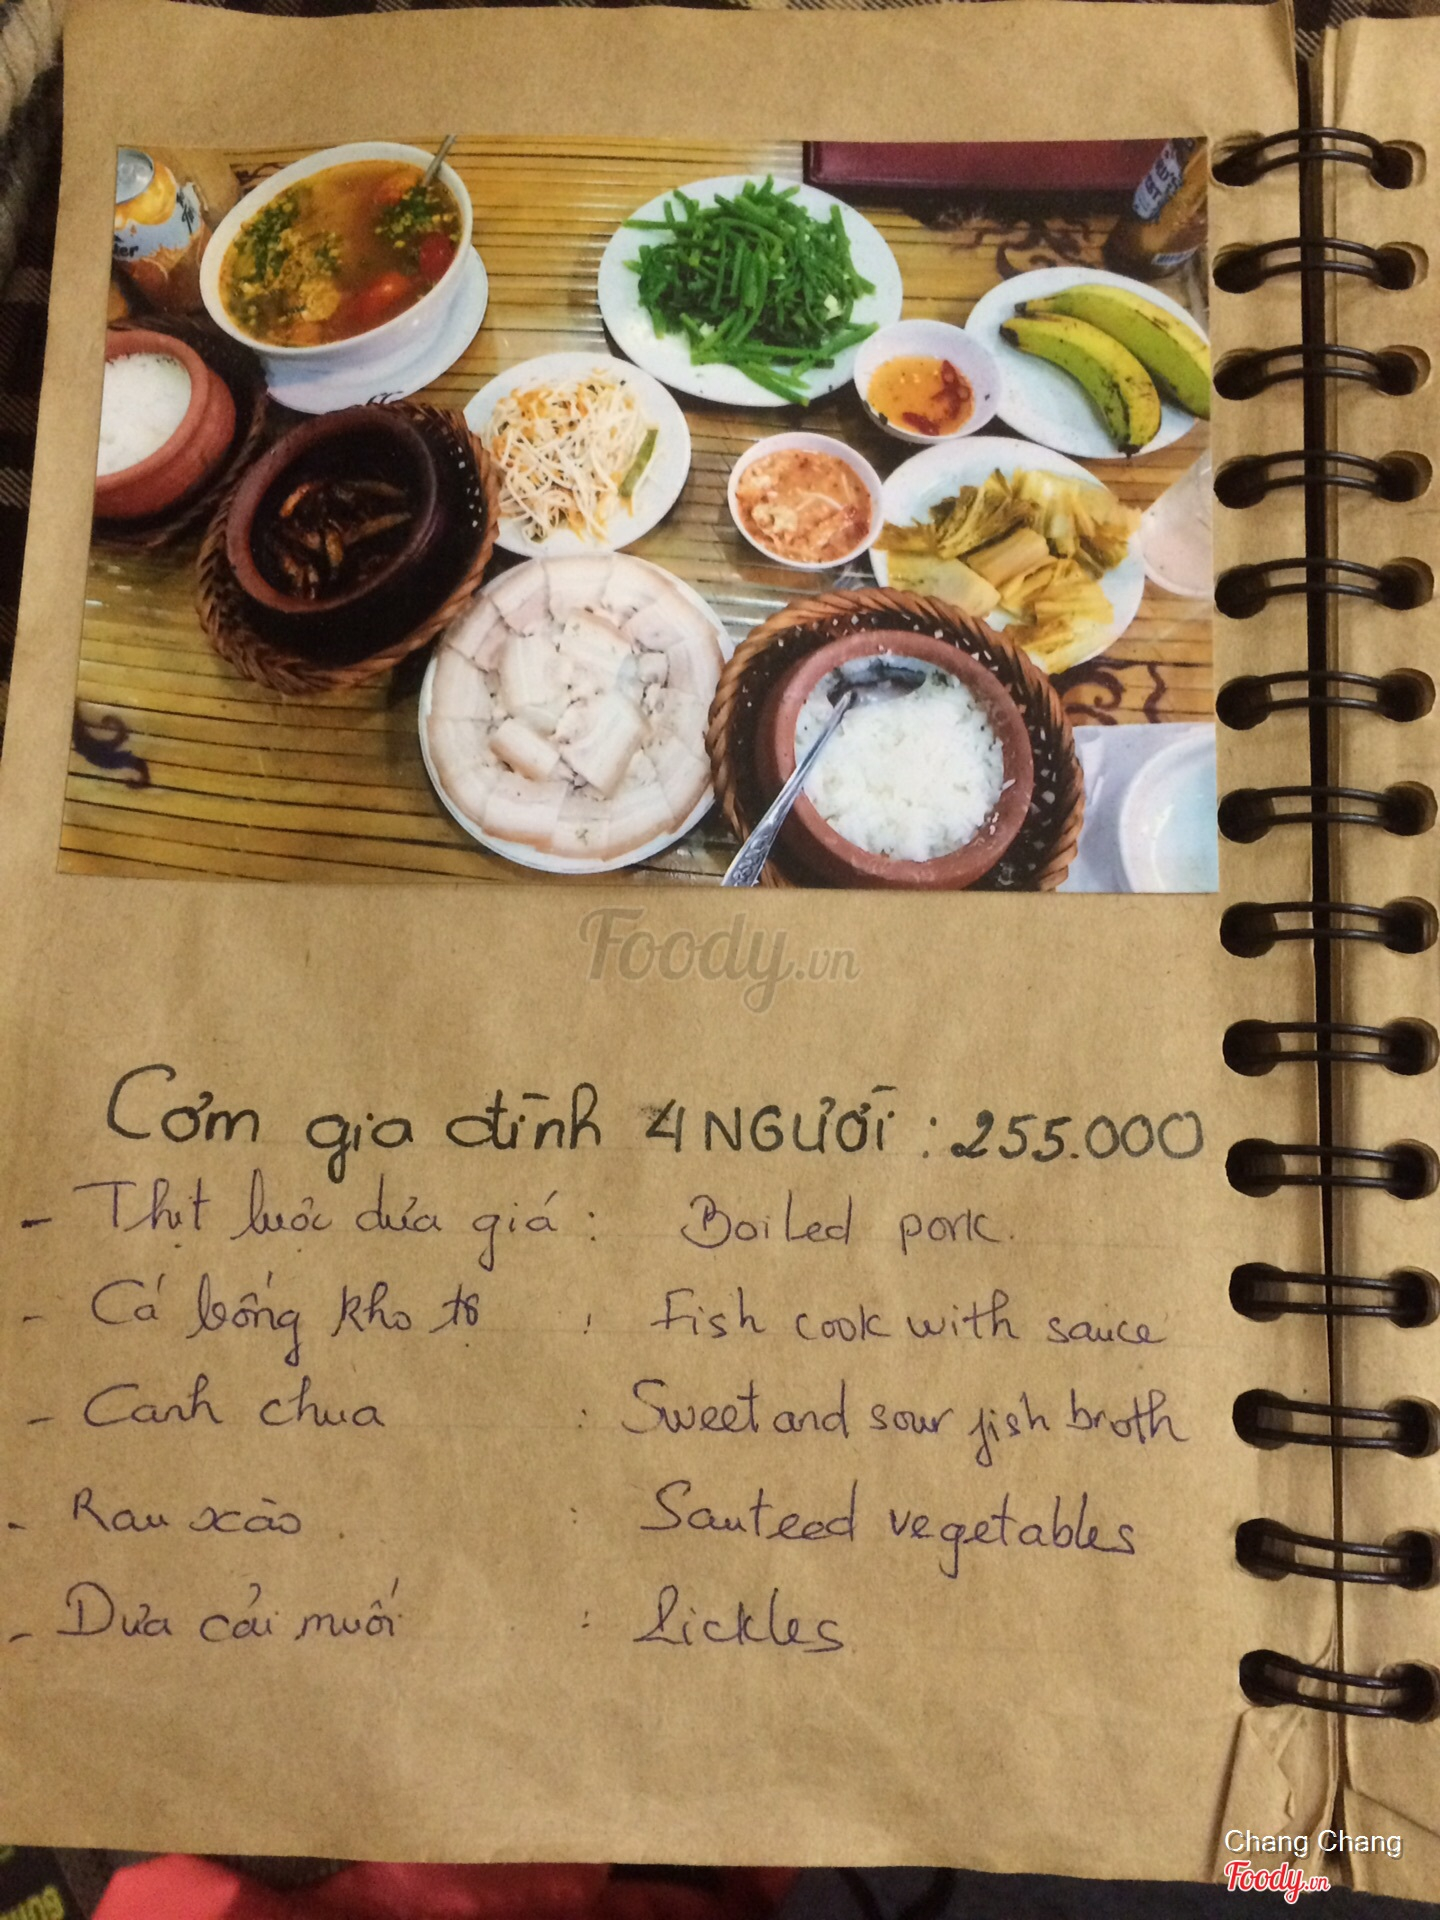 Foody.vn
Cơm gia đình 4 NGƯỜI : 255.000
- Thịt luộc dưa giá : Boiled pork.
- Cá bống kho tộ : Fish cook with sauce
- Canh chua : Sweet and sour fish broth
- Rau xào . : Sauteed vegetables
- Dưa cải muối : Pickles
Chang Chang
Foody.vn